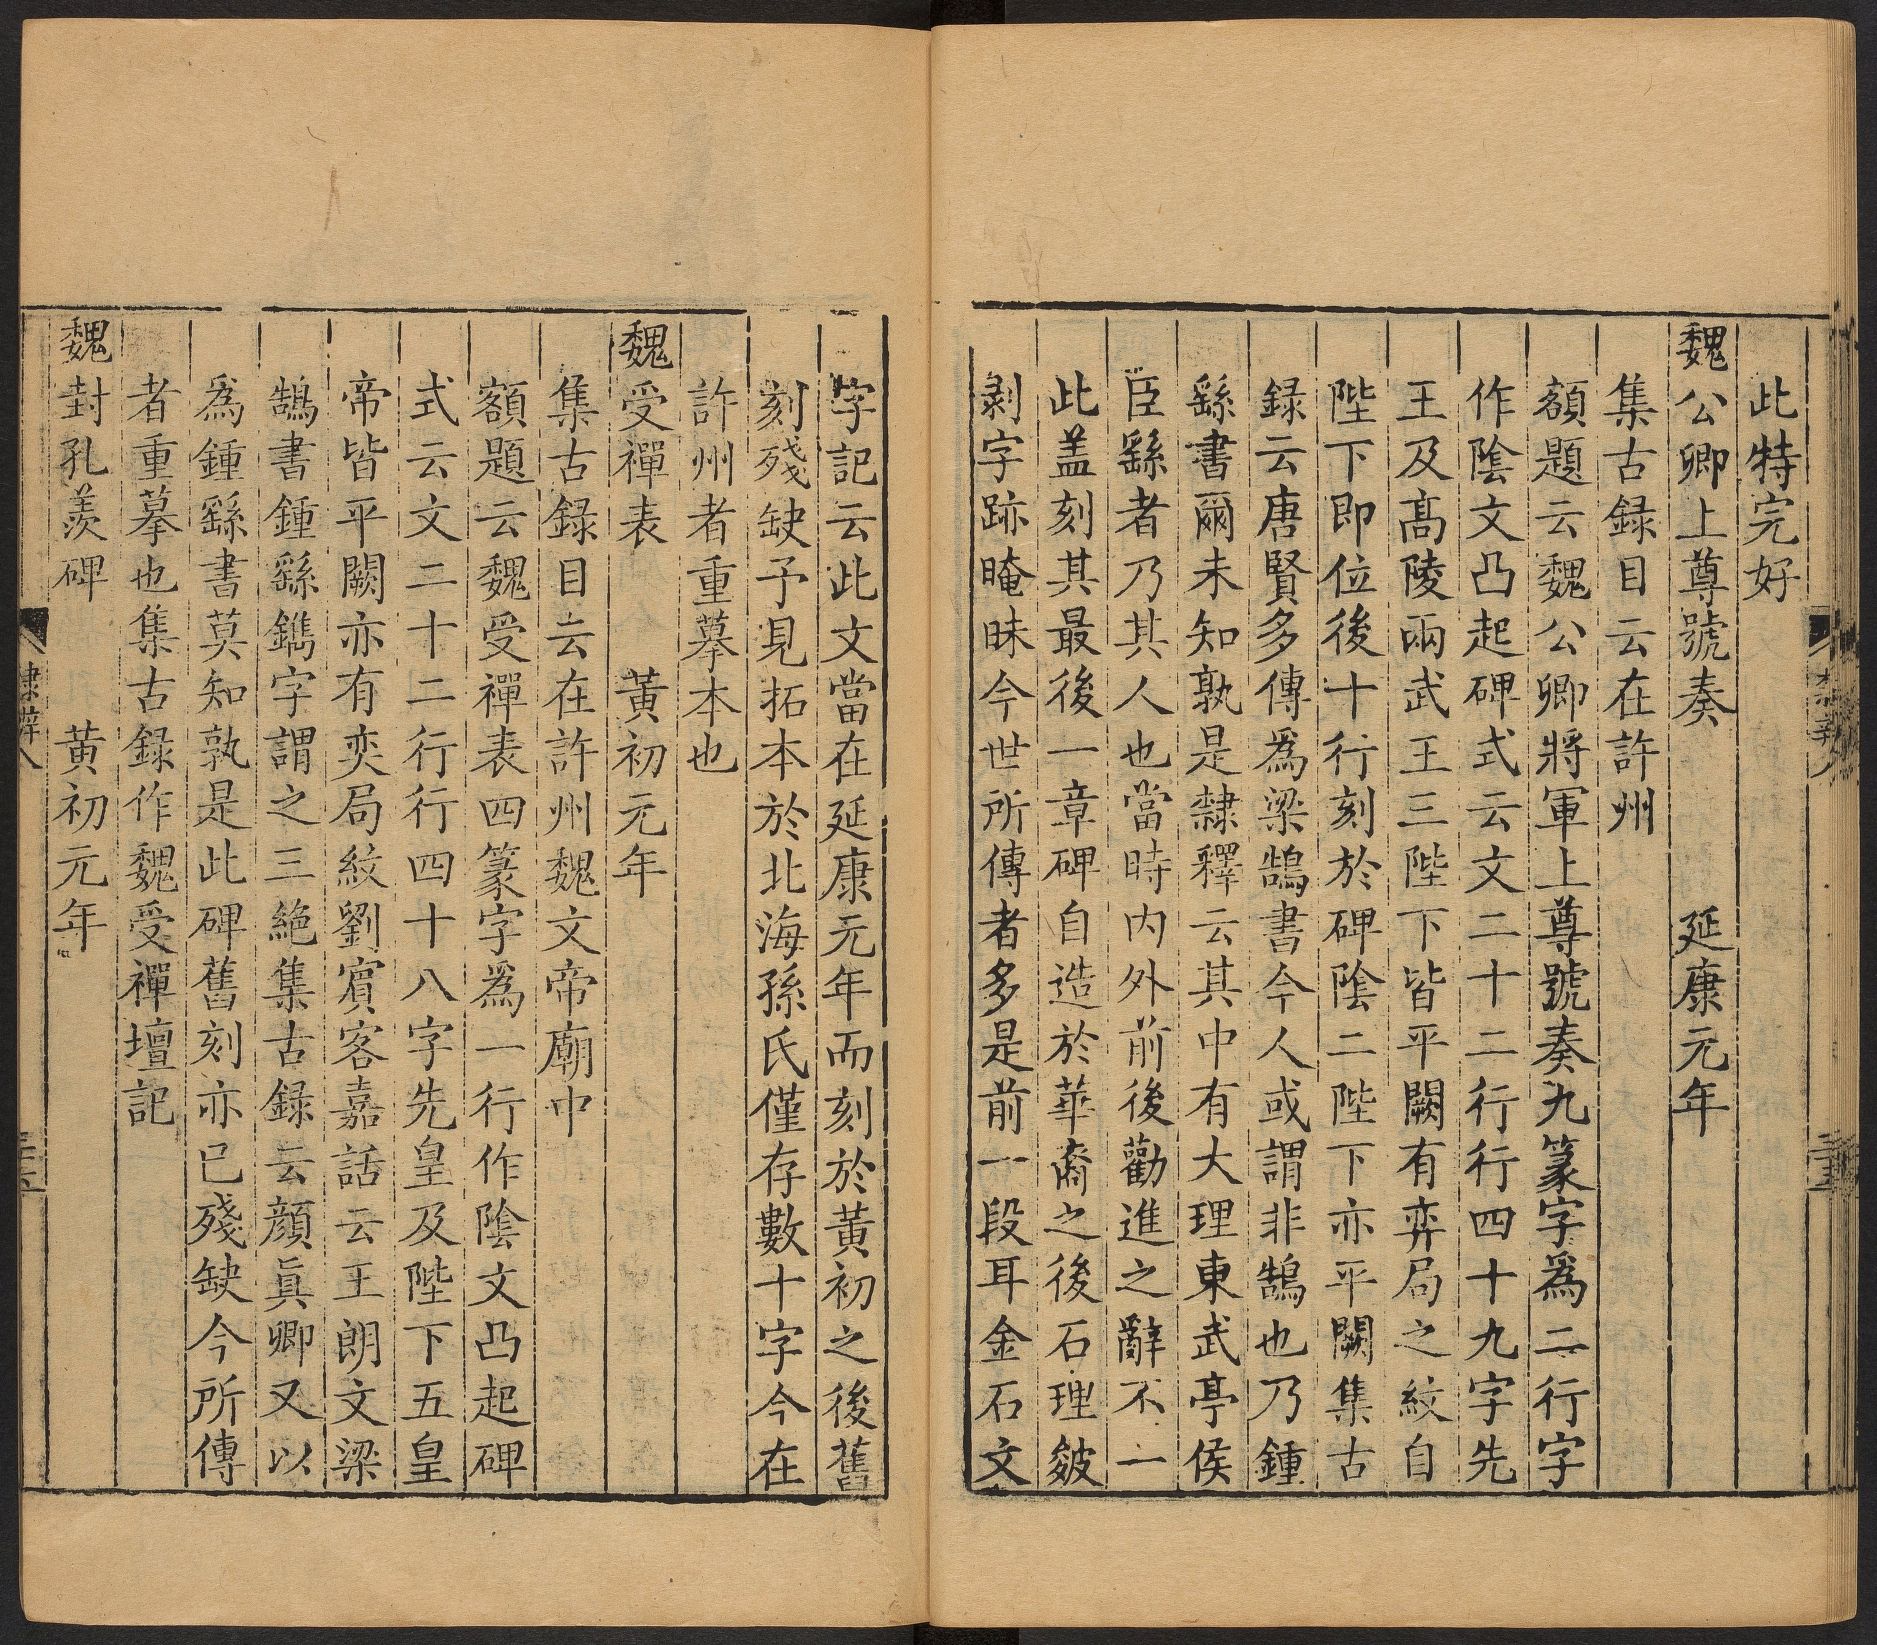 此特完好
魏公卿上尊號奏 延康元年
集古録目云在許州
額題云魏公卿將軍上尊號奏九篆字爲二行字
作陰文凸起碑式云文二十二行行四十九字先
王及髙陵兩武王三陛下皆平闕有弈局之紋自
陛下即位後十行刻於碑陰二陛下亦平闕集古
録云唐賢多傳爲梁鵠書今人或謂非鵠也乃鍾
繇書爾未知孰是隸釋云其中有大理東武亭侯
臣繇者乃其人也當時内外前後勸進之辭不一
此盖刻其最後一章碑自造於華裔之後石理皴
剥字跡晻昧今世所傳者多是前一段耳金石文
字記云此文當在延康元年而刻於黃初之後舊
刻殘缺予見拓本於北海孫氏僅存數十字今在
許州者重摹本也
魏受禪表 黃初元年
集古録目云在許州魏文帝廟中
額題云魏受禪表四篆字爲一行作陰文凸起碑
式云文二十二行行四十八字先皇及陛下五皇
帝皆平闕亦有奕局紋劉賔客嘉話云王朗文梁
鵠書鍾繇鐫字謂之三絶集古録云顔眞卿又以
爲鍾繇書莫知孰是此碑舊刻亦已殘缺今所傳
者重摹也集古録作魏受禪壇記
魏封孔羨碑 黃初元年
隸辨八